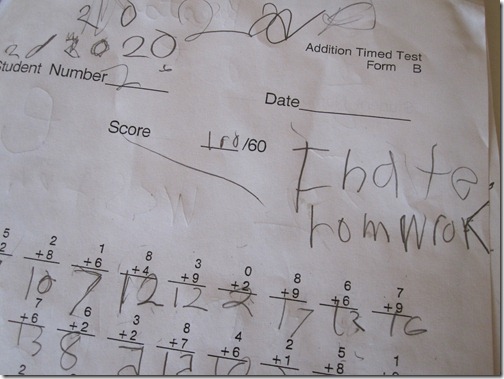 2020
Addition Timed Test
Form B
Student Number 2
Date
Score /60
I hate
homwrok
5 2 1 8 3 0 8 6 7
2 +8 +6 +4 +9 +2 +9 +6 +9
10 7 12 12 2 17 13 16
7 6 3 8 4 2 5
+6 +2 +2 +7 +6 +1 +8
13 8